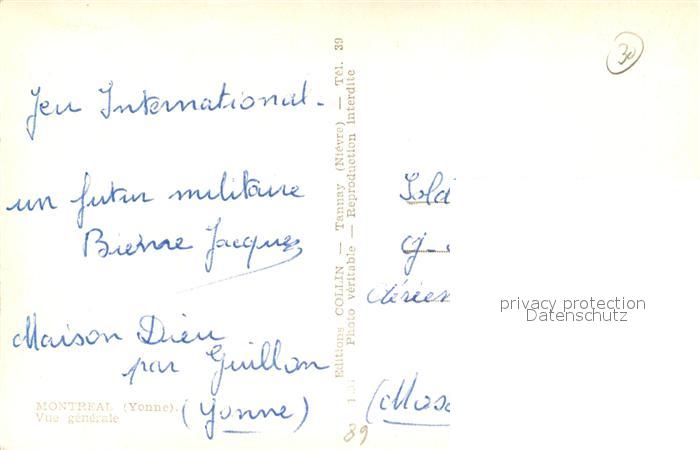 Jeu International.
un futur militaire
Bierne Jacques
Maison Dieu
par Guillon
(Yonne)
MONTREAL (Yonne).
Vue générale
Editions COLLIN — Tannay (Nièvre) — Tél. 39
Photo véritable — Reproduction interdite
89
30
Sold
(Mos
privacy protection
Datenschutz